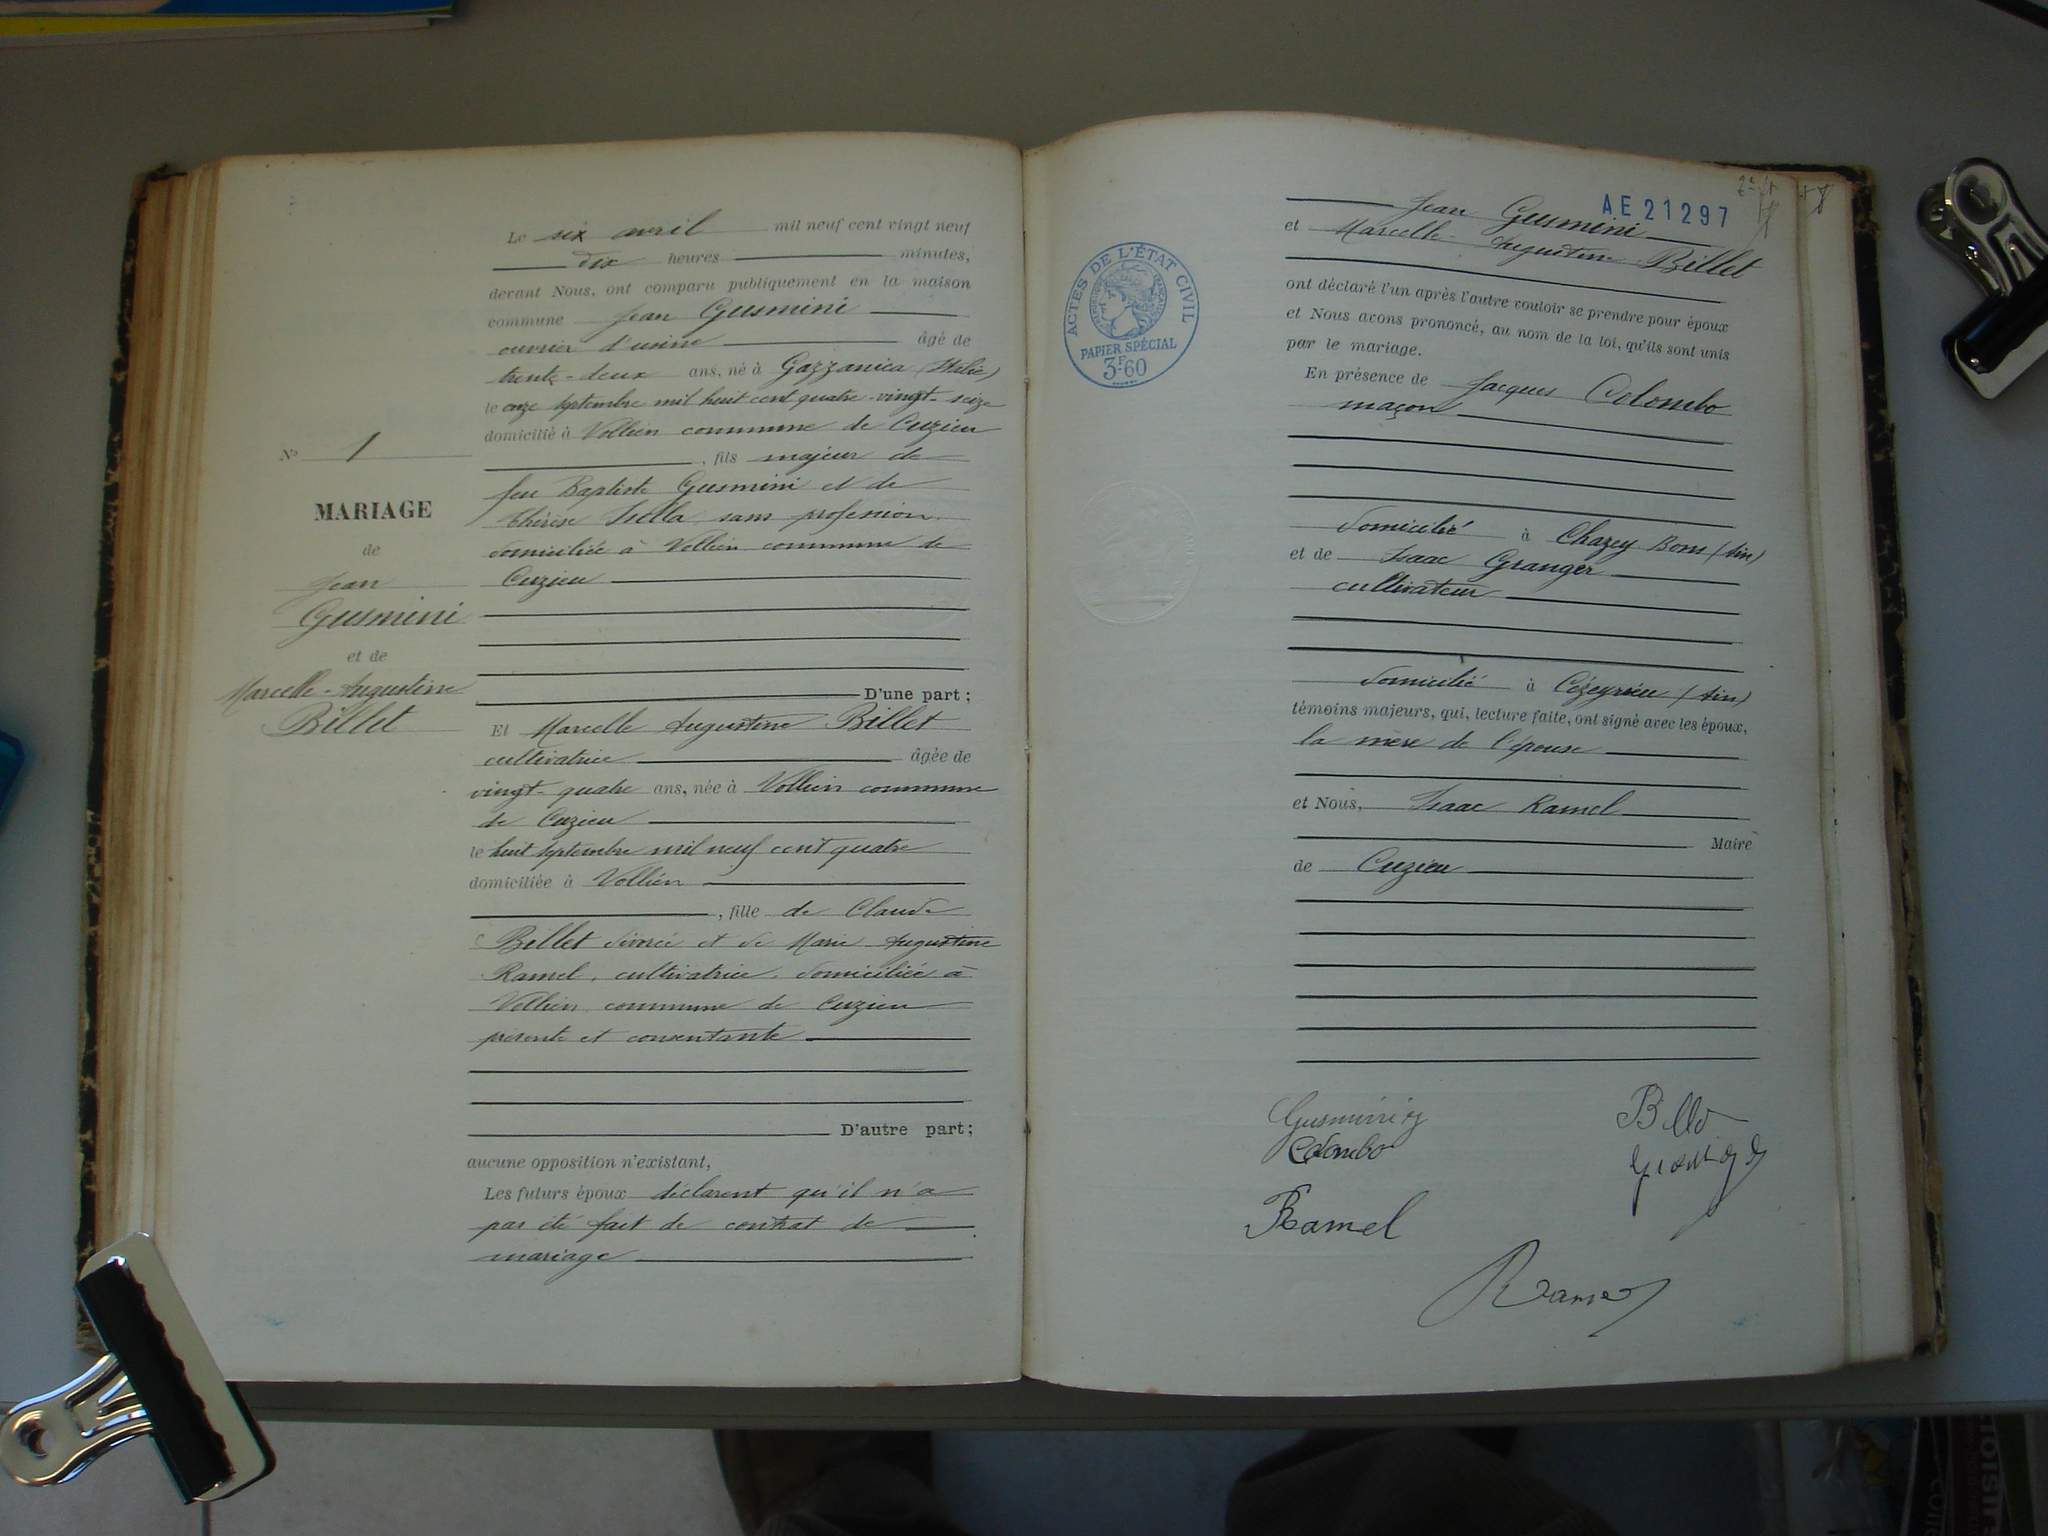 Le six avril mil neuf cent vingt neuf
dix heures minutes,
devant Nous, ont comparu publiquement en la maison
commune Jean Gusmini
ouvrier d'usine âgé de
trente-deux ans, né à Gazzanica (Italie)
le onze septembre mil huit cent quatre-vingt-seize
domicilié à Vollien commune de Cuzieu
, fils majeur de
feu Baptiste Gusmini et de
Thérèse Isella, sans profession.
domiciliée à Vollien commune de
Cuzieu
D'une part;
Et Marcelle Augustine Billet
cultivatrice âgée de
vingt-quatre ans, née à Vollien commune
de Cuzieu
le huit septembre mil neuf cent quatre
domiciliée à Vollien
, fille de Claude
Billet divorcé et de Marie Augustine
Ramel, cultivatrice, domiciliée à
Vollien commune de Cuzieu
présente et consentante
D'autre part;
aucune opposition n'existant,
Les futurs époux déclarent qu'il n'a
pas été fait de contrat de
mariage
No 1
MARIAGE
de
Jean
Gusmini
et de
Marcelle-Augustine
Billet
AE 21297
ACTES DE L'ÉTAT CIVIL
PAPIER SPÉCIAL
3F60
Jean Gusmini
et Marcelle-Augustine Billet
ont déclaré l'un après l'autre vouloir se prendre pour époux
et Nous avons prononcé, au nom de la loi, qu'ils sont unis
par le mariage.
En présence de Jacques Colombo
maçon
domicilié à Chazey Bons (Ain)
et de Isaac Granger
cultivateur
domicilié à Cézeyrieu (Ain)
témoins majeurs, qui, lecture faite, ont signé avec les époux,
la mère de l'épouse
et Nous, Isaac Ramel
Maire
de Cuzieu
Gusmini Billet
Colombo
Ramel
Ramel